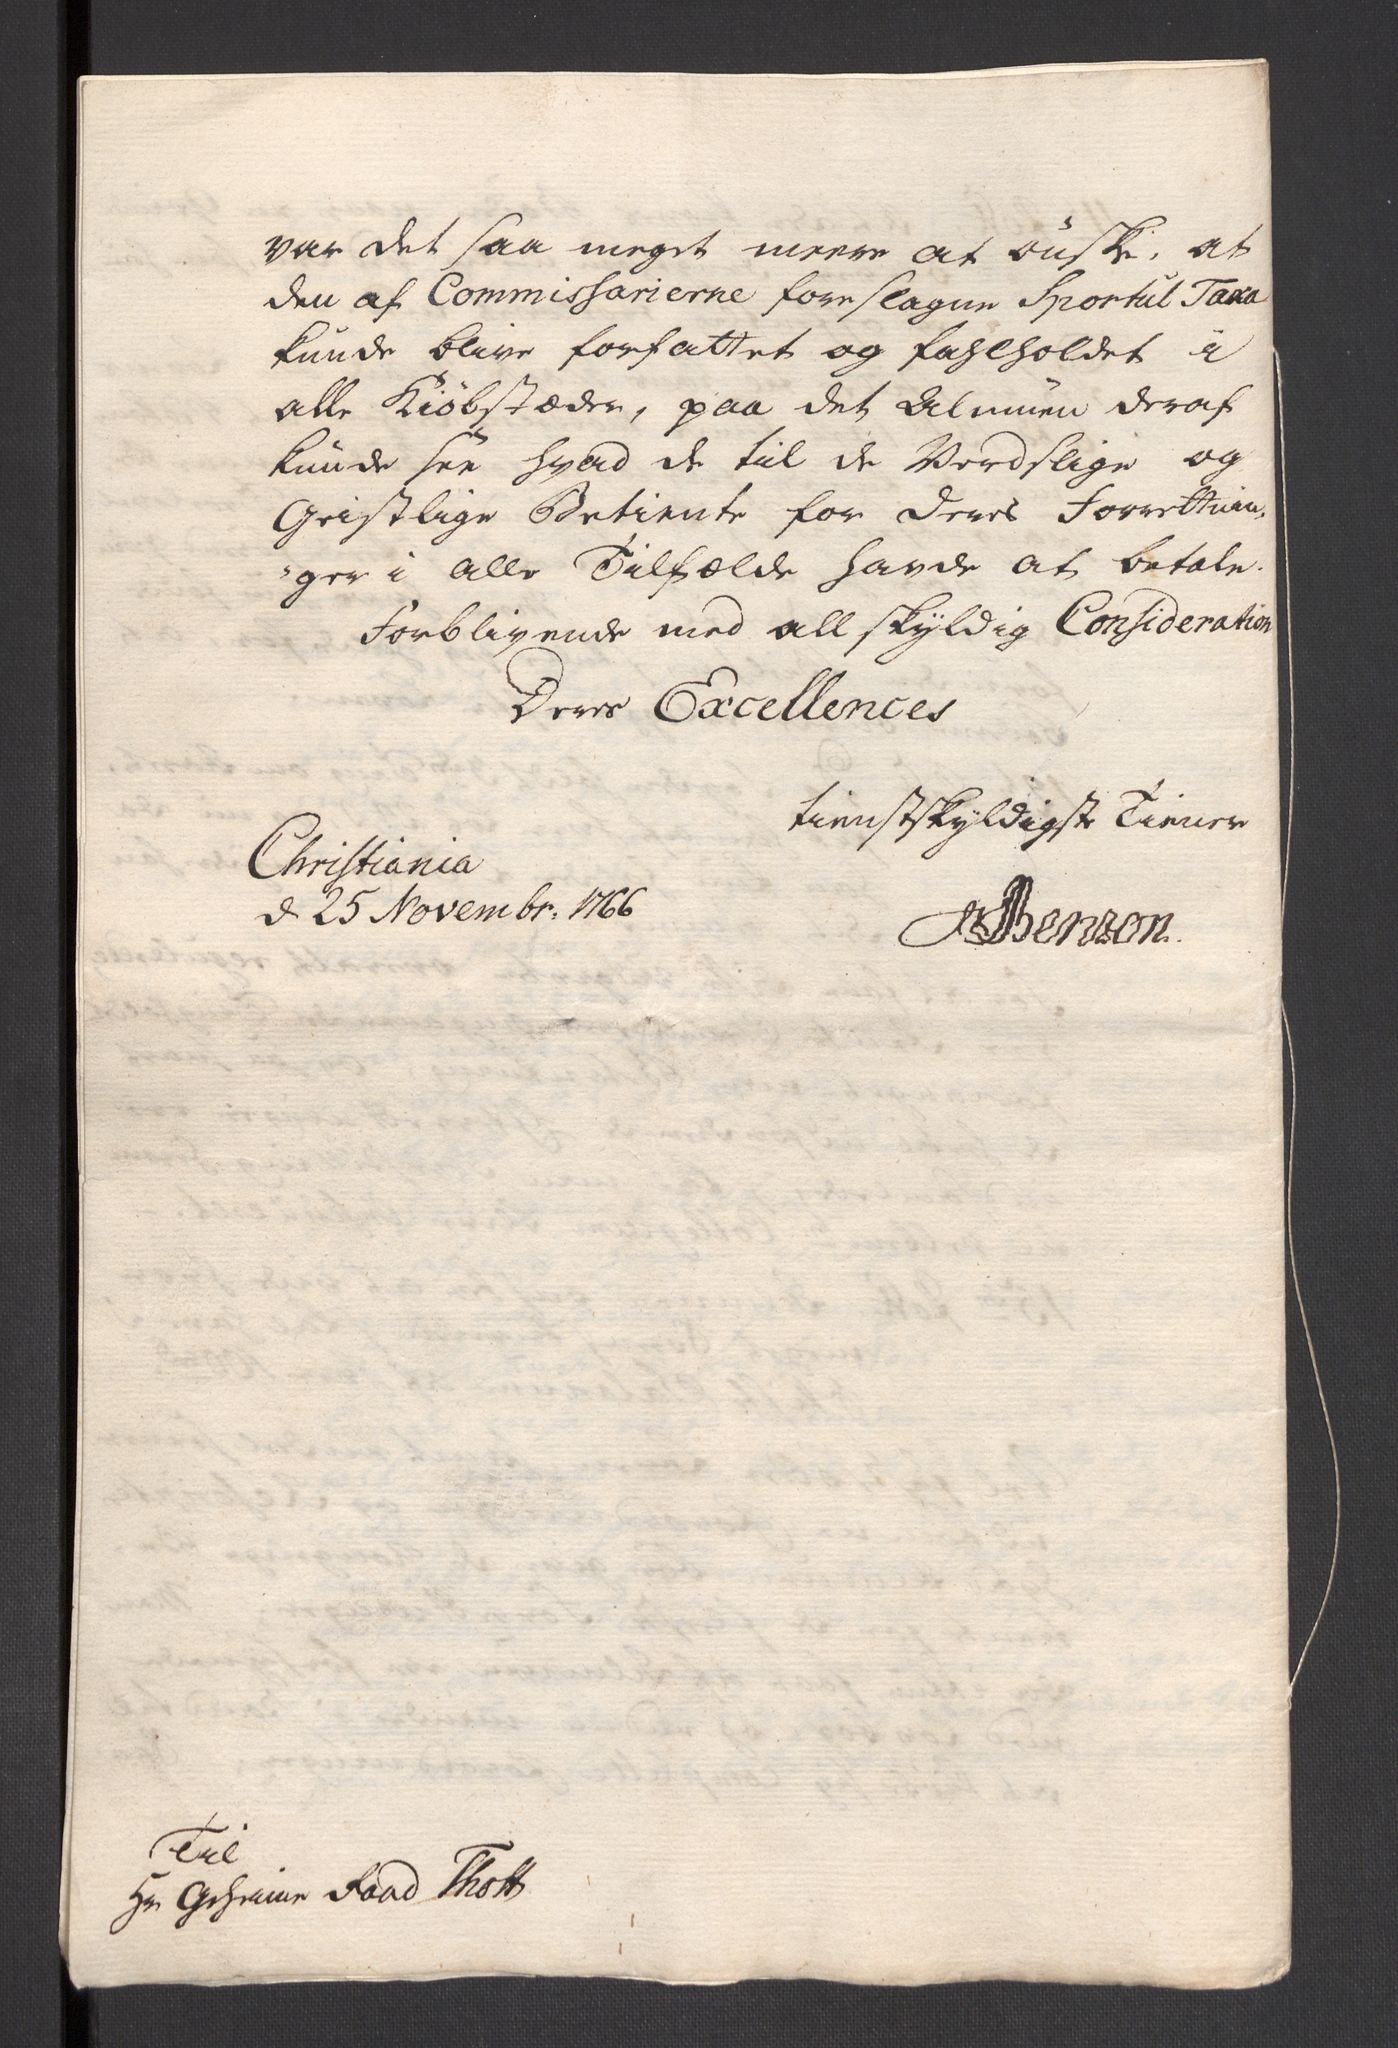 var det saa meget meere at önske, at
den af Commissarierne foreslagne Sportul Taxa
kunde blive forfattet og fastholdet i
alle Kiöbstæder, paa det Almuen deraf
kunde see hvad de til de Verdslige og
Geistlige Betiente for deres Forrettnin„
„ger i alle Tilfælde havde at betale.
Forblivende med all skyldig Consideration
Deres Excellences
tienstskyldigste Tiener
Christiania
d 25 Novembr. 1766
Benzon.
Til
Hr Geheime Raad Thott